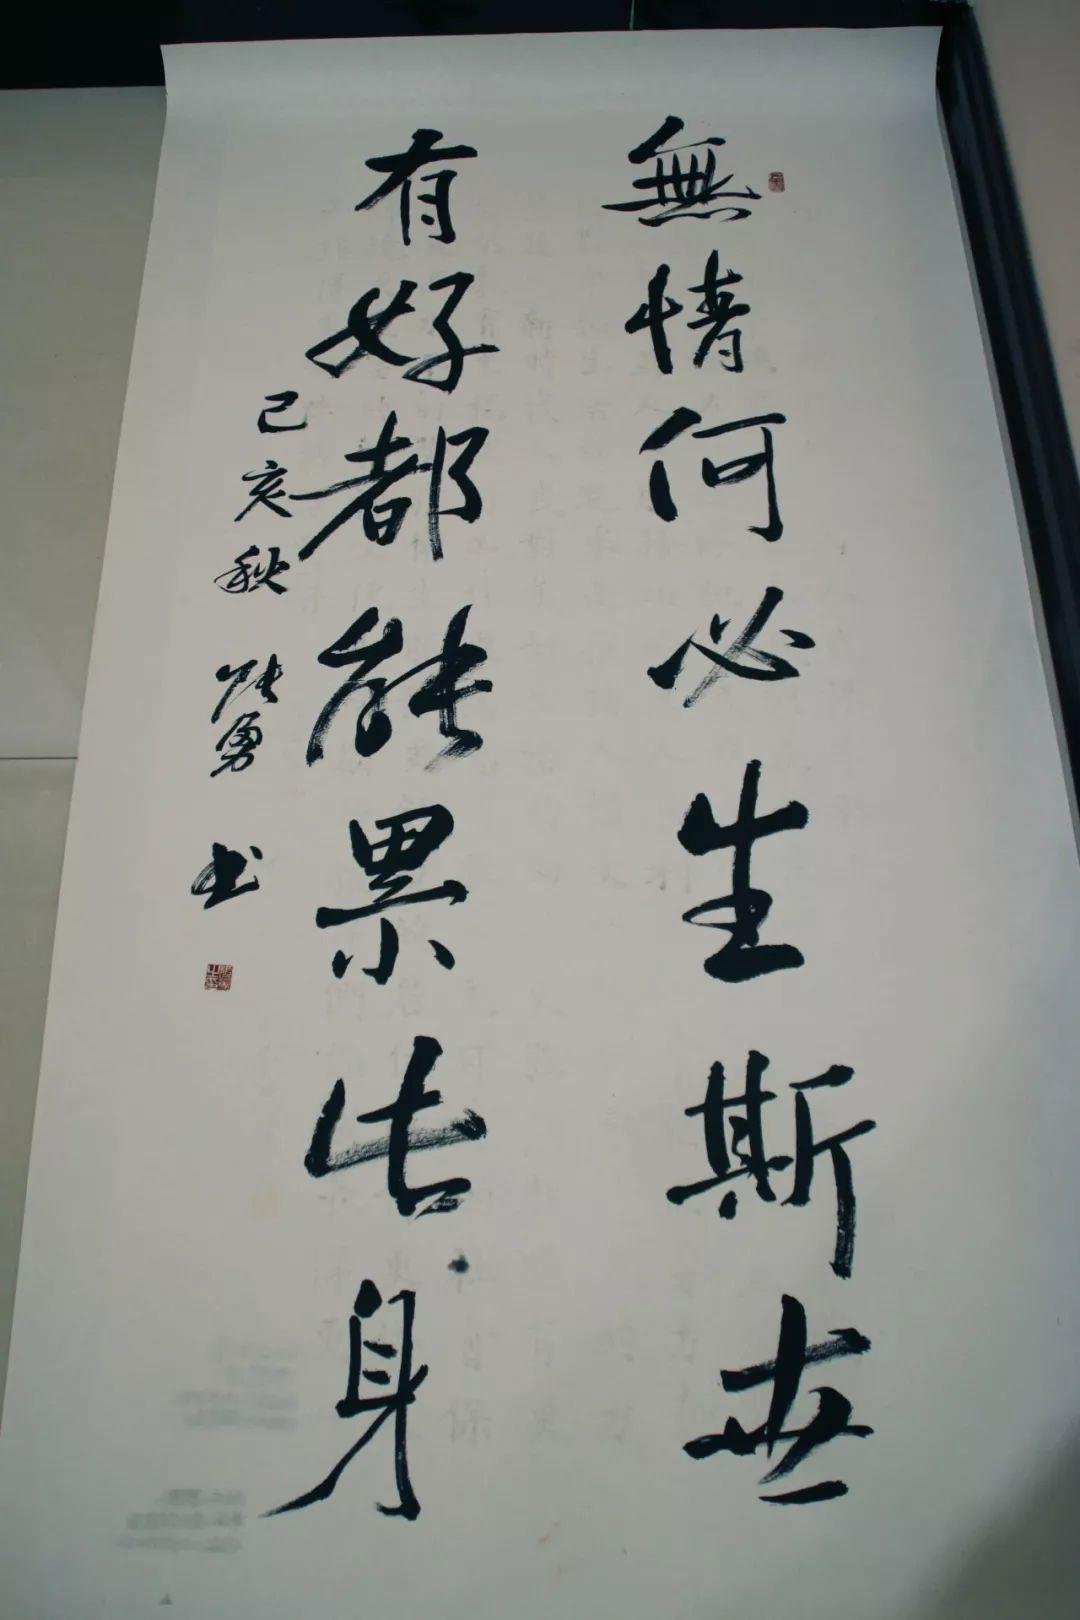 無情何必生斯世
有好都能累此身
己亥秋 張勇 书